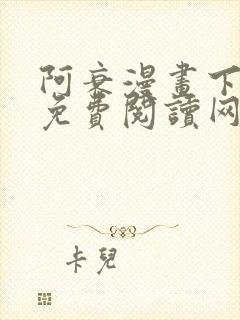 阿衰漫畫下
免費閱讀网
卡兒